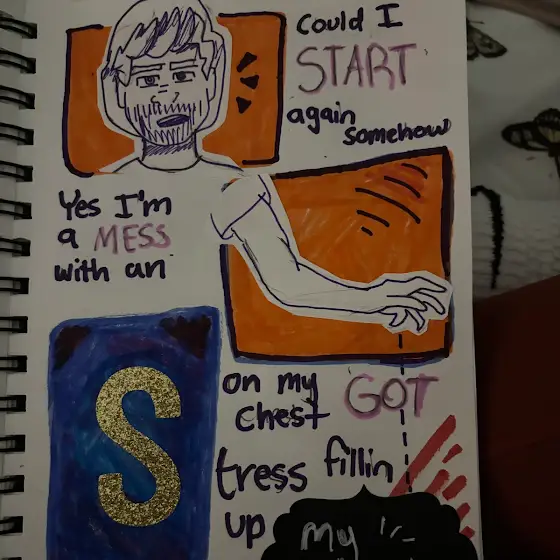 could I
START
again
somehow
Yes I'm
a MESS
with an
S
on my
chest
GOT
tress fillin
up
my